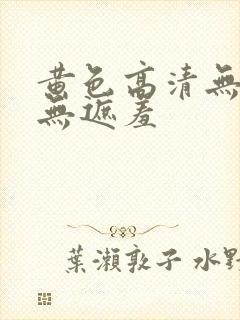 黄色高清無
無遮羞
葉瀨敦子 水野